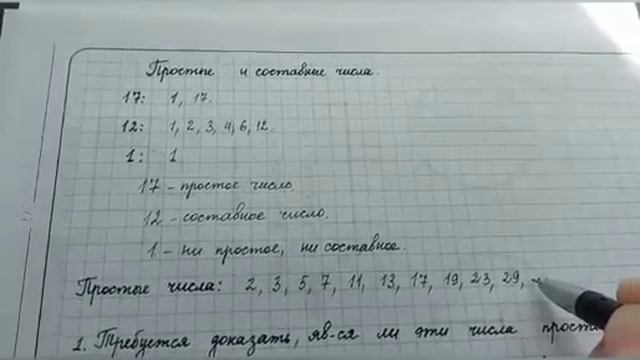 Простые и составные числа.
17: 1, 17.
12: 1, 2, 3, 4, 6, 12.
1: 1
17 - простое число,
12 - составное число.
1 - ни простое, ни составное.
Простые числа: 2, 3, 5, 7, 11, 13, 17, 19, 23, 29,
1. Требуется доказать, яв-ся ли эти числа